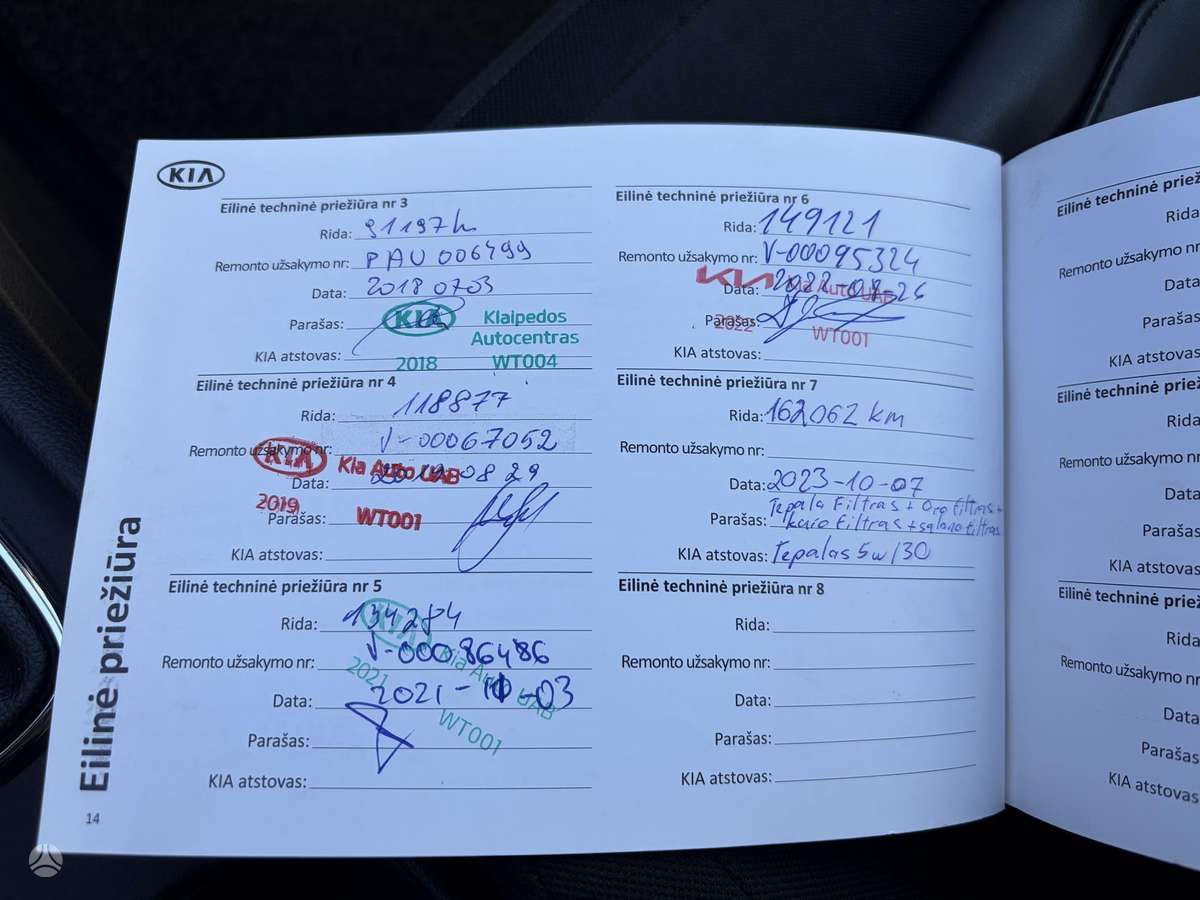 KIA
Eilinė techninė priežiūra nr 3
Rida: 91197 h
Remonto užsakymo nr: PAU 006499
Data: 2018 07 03
Parašas:
KIA Klaipedos
Autocentras
KIA atstovas:
2018 WT004
Eilinė techninė priežiūra nr 4
Rida: 118877
Remonto užsakymo nr: V-00067052
KIA Kia Auto UAB
Data: 2019 08 29
2019
Parašas: WT001
KIA atstovas:
Eilinė techninė priežiūra nr 5
Rida: 134284
Remonto užsakymo nr: V-00086486
KIA Kia Auto UAB
2021
Data: 2021-11-03
WT001
Parašas:
KIA atstovas:
Eilinė priežiūra
14
Eilinė techninė priežiūra nr 6
Rida: 149121
Remonto užsakymo nr: V-00095324
KIA Kia Auto UAB
Data:
Parašas:
2022 WT001
KIA atstovas:
Eilinė techninė priežiūra nr 7
Rida: 162062 km
Remonto užsakymo nr:
Data: 2023-10-07
Tepala Filtras + Oro filtras +
Parašas: kuro Filtras + salono filtras
KIA atstovas: Tepalas 5w/30
Eilinė techninė priežiūra nr 8
Rida:
Remonto užsakymo nr:
Data:
Parašas:
KIA atstovas:
Eilinė techninė
Rida
Remonto užsakymo nr
Data
Parašas
KIA atstovas
Eilinė techninė
Rida
Remonto užsakymo nr
Data
Parašas
KIA atstovas
Eilinė techninė
Rida
Remonto užsakymo nr
Data
Parašas
KIA atstovas